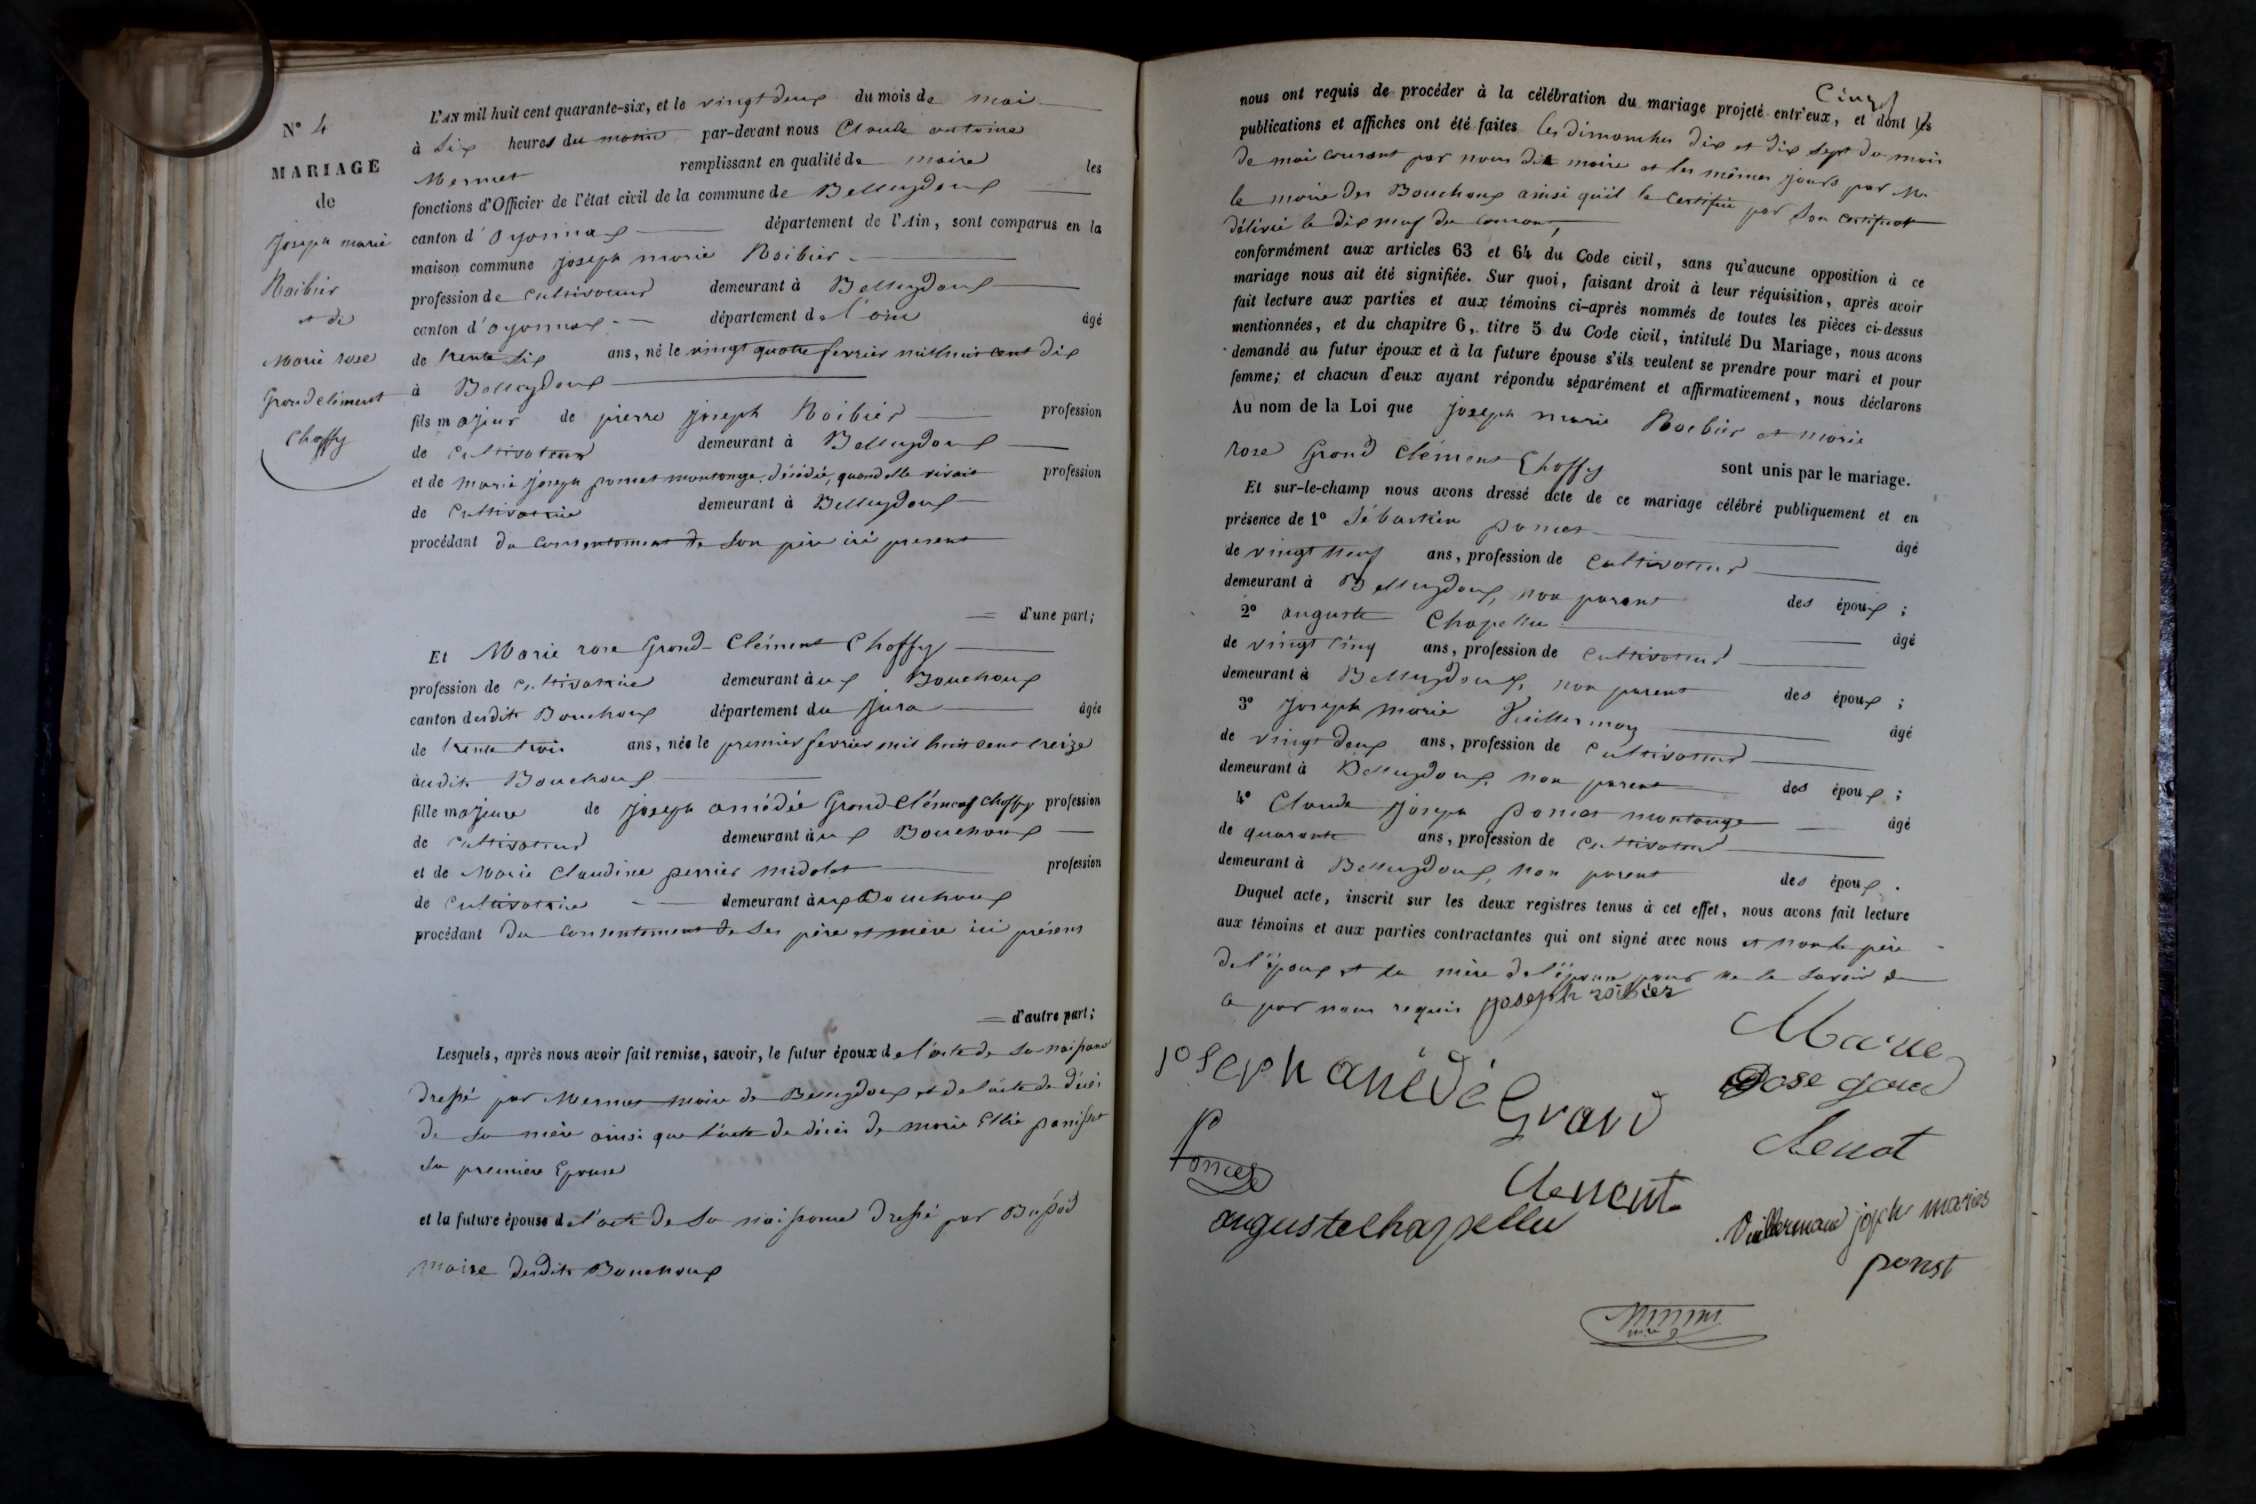 N° 4
MARIAGE
de
Joseph marie
Roibier
et de
Marie rose
Grand clément
Choffy
L'AN mil huit cent quarante-six, et le vingt deux du mois de mai
à six heures du matin par-devant nous Claude antoine
Mermet remplissant en qualité de maire les
fonctions d'Officier de l'état civil de la commune de Belleydoux
canton d'oyonnax département de l'Ain, sont comparus en la
maison commune Joseph marie Roibier
profession de cultivateur demeurant à Belleydoux
canton d'oyonnax département de l'ain âgé
de trente six ans, né le vingt quatre fevrier mil huit cent dix
à Belleydoux
fils majeur de pierre joseph Roibier profession
de cultivateur demeurant à Belleydoux
et de marie joseph poncet montange, décédée, quand elle vivait profession
de cultivatrice demeurant à Belleydoux
procédant du consentement de son père ici present
d'une part;
Et Marie rose Grand-Clément Choffy
profession de cultivatrice demeurant aux Bouchoux
canton desdits Bouchoux département du Jura âgée
de trente trois ans, née le premier fevrier mil huit cent treize
audits Bouchoux
fille majeure de joseph amédée Grand-Clément choffy profession
de cultivateur demeurant aux Bouchoux
et de Marie Claudine perrier midolet profession
de cultivatrice demeurant aux Bouchoux
procédant du consentement de ses père et mère ici présens
d'autre part;
Lesquels, après nous avoir fait remise, savoir, le futur époux de l'acte de sa naissance
dressé par Mermet maire de Belleydoux et de l'acte de décès
de sa mère ainsi que l'acte de décès de marie panisset
sa première Epouse
et la future épouse de l'acte de sa naissance dressé par
maire desdits Bouchoux
nous ont requis de procéder à la célébration du mariage projeté entr'eux, et dont les
publications et affiches ont été faites les dimanches dix et dix sept du mois
de mai courant par nous dit maire et les mêmes jours par Mr
le maire des Bouchoux ainsi qu'il le certifie par son certificat
délivré le dix neuf du courant,
conformément aux articles 63 et 64 du Code civil, sans qu'aucune opposition à ce
mariage nous ait été signifiée. Sur quoi, faisant droit à leur réquisition, après avoir
fait lecture aux parties et aux témoins ci-après nommés de toutes les pièces ci-dessus
mentionnées, et du chapitre 6, titre 5 du Code civil, intitulé Du Mariage, nous avons
demandé au futur époux et à la future épouse s'ils veulent se prendre pour mari et pour
femme; et chacun d'eux ayant répondu séparément et affirmativement, nous déclarons
Au nom de la Loi que joseph marie Roibier et marie
rose Grand Clément Choffy sont unis par le mariage.
Et sur-le-champ nous avons dressé acte de ce mariage célébré publiquement et en
présence de 1° Sébastien poncet âgé
de vingt neuf ans, profession de cultivateur
demeurant à Belleydoux, non parent des époux;
2° auguste Chapellu âgé
de vingt cinq ans, profession de cultivateur
demeurant à Belleydoux, non parent des époux;
3° joseph marie Vuillermoz âgé
de vingt deux ans, profession de cultivateur
demeurant à Belleydoux, non parent des époux;
4° Claude joseph poncet montange âgé
de quarante ans, profession de cultivateur
demeurant à Belleydoux, non parent des époux.
Duquel acte, inscrit sur les deux registres tenus à cet effet, nous avons fait lecture
aux témoins et aux parties contractantes qui ont signé avec nous et non le père
de l'époux et la mère de l'épouse pour ne le savoir de
ce par nous requis joseph roibier
Marie
joseph amédé Rose
Grand
Poncet
Clement
auguste chapellu
Vuillermoz joseph maries
ponset